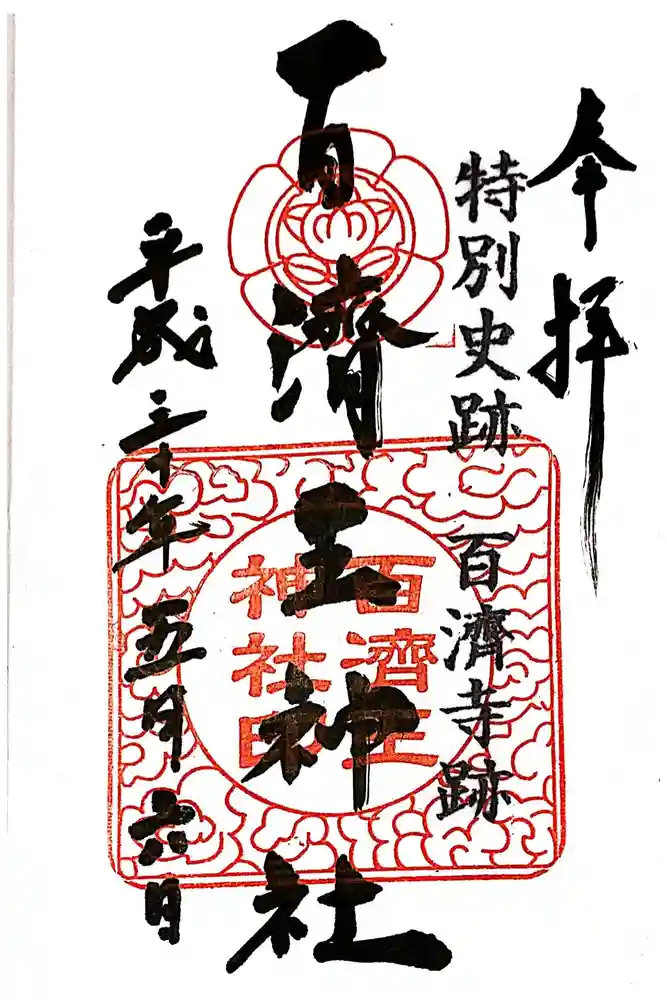 奉拝
特別史跡 百濟寺跡
百濟王神社
百濟王
神社印
平成三十年五月六日